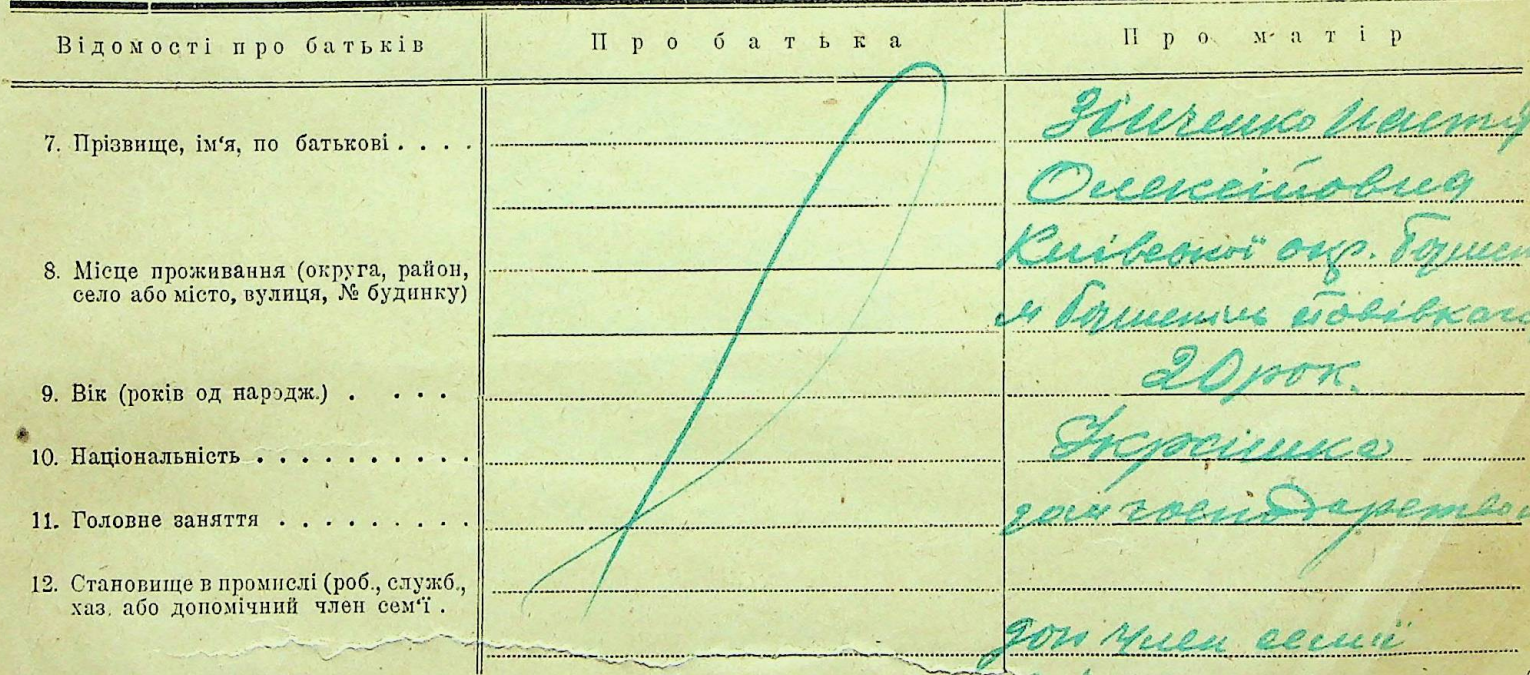 Відомості про батьків Про батька Про матір
7. Прізвище, ім'я, по батькові . . . . Зінченко Настя
Олексіїовна
8. Місце проживання (округа, район, Київської окр.
село або місто, вулиця, № будинку) м Бориспіль
9. Вік (років од народж.) . . . . 20 рок.
10. Національність . . . . . . . . . . Українка
11. Головне заняття . . . . . . . . . дом господарство
12. Становище в промислі (роб., служб.,
хаз. або допомічний член сем'ї . доп член семії